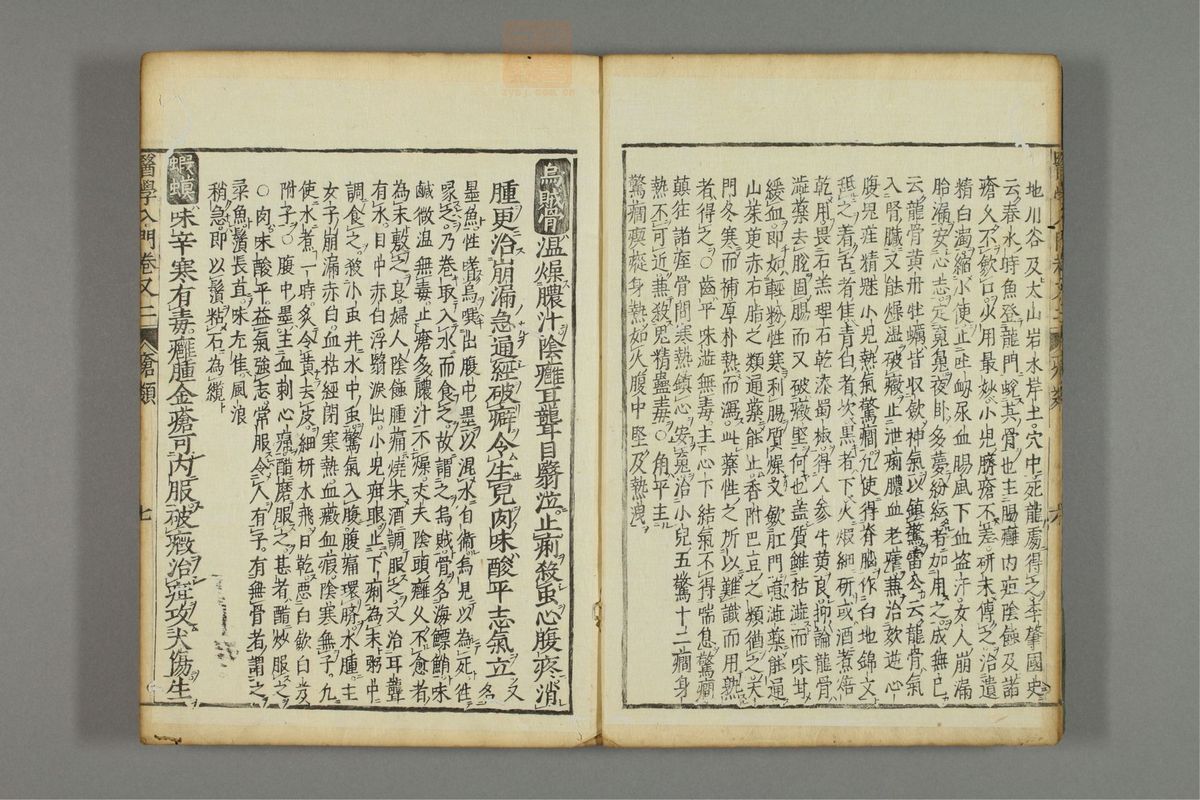 地川谷及太山岩水岸土穴中死龍處得之李肇國史
云春水時魚登龍門蛻其骨也主腸癰內疽陰蝕及諸
瘡久不斂口火用最妙小兒臍瘡不差研末傅之治遺
精白濁縮小便止吐衄尿血腸風下血盜汗女人崩漏
胎漏安心志定魂魄夜臥多夢紛紜者加用之成無己
云龍骨黃丹牡蠣皆收斂神氣以鎮驚雷公云龍骨氣
入腎臟又能燥溫破癥止泄痢膿血老瘧兼治效逆心
腹鬼疰精魅小兒熱氣驚癇凡使得脊腦作白地錦文
舐之着舌者佳青白者次黑者下火煅細研或酒煮焙
乾用畏石羔理石乾漆蜀椒得人參牛黃良抑論龍骨
澁藥去脫固腸而又破癥堅何也蓋質雖枯澁而味甘
緩血即如輕粉性寒利腸質燥又斂肛門意澁藥能通
山茱萸赤石脂之類通藥能止香附巴豆之類猶之天
門冬寒而補厚朴熱而瀉此藥性之所以難識而用熟
者得之○齒平味澁無毒主心下結氣不得喘息驚癇
癲狂諸痙骨間寒熱鎮心安魂治小兒五驚十二癇身
熱不可近兼殺鬼精蠱毒○角平主
驚癇瘈瘲身熱如火腹中堅及熱洩
烏賊骨溫燥膿汁陰癰耳聾目翳泣止痢殺虫心腹疼消
腫更治崩漏急通經破癖令生兒肉味酸平志氣立又名
墨魚性嗜烏噀出腹中墨以混水自衛烏見以為死往
啄之乃卷取入水而食之故謂之烏賊骨名海鰾鮹味
鹹微溫無毒止瘡多膿汁不燥丈夫陰頭癰久不愈者
為末敷之良婦人陰蝕腫痛燒末酒調服之又治耳聾
有水目中赤白浮翳淚出小兒痢眼止下痢為末粥中
調食之殺小虫井水中虫驚氣入腹腹痛環臍水腫主
女子崩漏赤白血枯經閉寒熱血臟血瘕陰寒無子凡
使水煮一時炙令黃去皮細研水飛日乾惡白斂白芨
附子○腹中墨主血刺心痛醋磨服之甚者醋炒服之
○肉味酸平益氣強志常服令人有子有無骨者謂之
柔魚鬚長直味尤佳風浪
稍急即以鬚粘石為纜
蝦蟆味辛寒有毒癰腫金瘡可內服破癥治疰攻犬傷生
醫學入門卷又二
瘡類
七